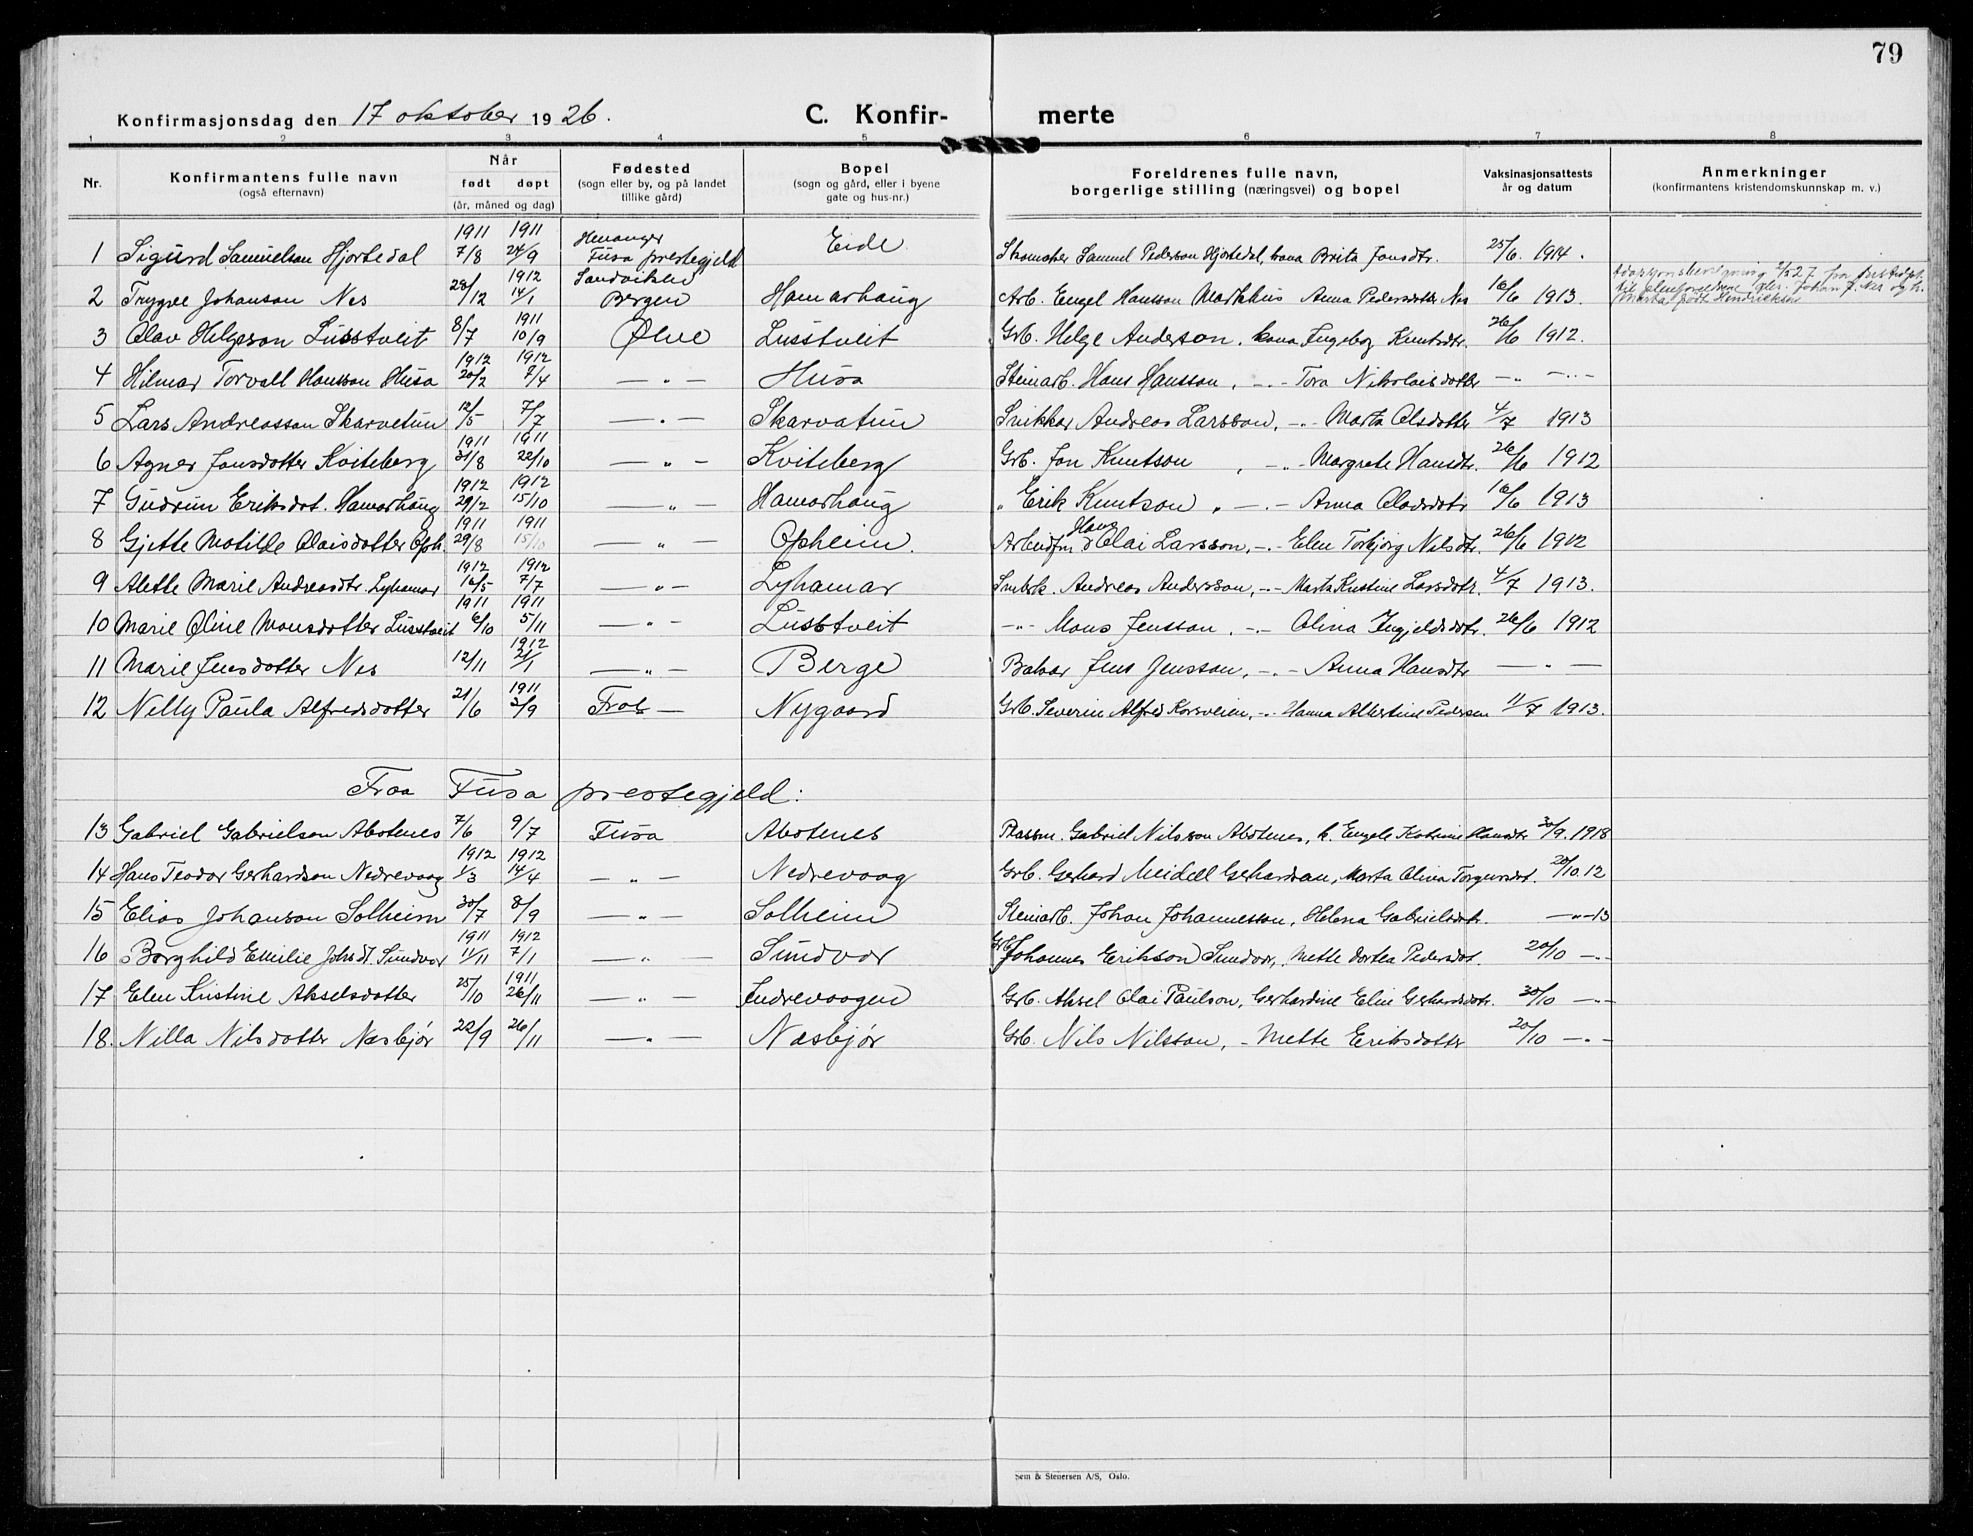 79
Konfirmasjonsdag den 17 oktober 1926.
C. Konfir-
merte
1 2 3 4 5 6 7 8
Nr.
Konfirmantens fulle navn
(også efternavn)
Når
født døpt
(år, måned og dag)
Fødested
(sogn eller by, og på landet
tillike gård)
Bopel
(sogn og gård, eller i byene
gate og hus-nr.)
Foreldrenes fulle navn,
borgerlige stilling (næringsvei) og bopel
Vaksinasjonsattests
år og datum
Anmerkninger
(konfirmantens kristendomskunnskap m. v.)
1911 1911
1 Sigurd Samuelson Hjortedal 7/8 24/9 Fusa prestegjeld Eide. Skomaker Samuel Pederson Hjortedal, kona Brita Jonsdtr. 25/6. 1914.
1912
2 Trygve Johanson Nes 23/12 14/1 Sandviken Bergen Hamarhaug Arb. Engel Hansson Markhus Anna Pedersdotter Nes 16/6 1913.
1911
3 Olav Helgeson Lusstveit 8/7 10/9 Ølve Lusstveit Grb. Helge Anderson, kona Ingeborg Knutsdtr. 26/6 1912.
1912 1912
4 Hilmar Torvall Hansson Husa 20/2 7/4 — „ — Husa Steinarb. Hans Hansson, -„- Tora Nikolaisdotter — „ — „ —
5 Lars Andreasson Skarvatun 12/5 7/7 — „ — Skarvatun Snikkar Andreas Larsson, -„- Marta Olsdotter 4/7 1913
1911 1911
6 Agnes Jonsdotter Kviteberg 31/8 22/10 — „ — Kviteberg Grb. Jon Knutson, -„- Margrete Hansdtr. 26/6 1912
1912 1912
7 Gudrun Eriksdot. Hamarhaug 29/2 15/10 — „ — Hamarhaug „ Erik Knutson, — „ — Anna Olavsdotr 16/6 1913
1911 1911
8 Gjette Matilde Olaisdotter Oph. 29/8 15/10 — „ — Opheim. Hans Olai Larsson, -„- Elen Torbjørg Nilsdtr. 26/6 1912
1912 1912
9 Alette Marie Andreasdtr. Lyhamar 16/5 7/7 — „ — Lyhamar Andreas Andersson, -„- Marta Kristine Larsdotr. 4/7 1913.
1911 1911
10 Marie Oline Monsdotter Lusstveit 6/10 5/11 — „ — Lusstveit -„- Mons Jensson, -„- Olina Ingjeldsdotr. 26/6 1912
1912
11 Marie Jensdotter Nes 12/11 21/1 — „ — Berge Jens Jensson, -„- Anna Hansdtr — „ —
1911
12 Nilly Paula Alfredsdotter 21/6 3/9 — Nygaard Grb. Severin Alfred Korsveien, -„- Hanna Albertine Pedersen 11/7 1913.
Fraa Fusa prestegjeld:
13 Gabriel Gabrielson Abotnes 7/6 9/7 Fusa Abotnes Plassm. Gabriel Nilsson Abotnes, k. Engele Katrine Hansdtr 30/9. 1918
1912 1912
14 Hans Teodor Gerhardson Nedrevaag 1/3 14/4 — „ — Nedrevaag Grb. Gerhard Meidell Gerhardson, Marta Olina Torgersdot. 20/10. 12
15 Elias Johanson Solheim 30/7 8/9 — „ — Solheim Steinarb. Johan Johannesson, Helena Gabrielsdotr. —„— 13
1911 1912
16 Borghild Emilie Johsdt. Sundvor 11/11 7/1 — „ — Sundvor Grb. Johannes Erikson Sundvor, Mette Dortea Pedersdot. 20/10 —„—
1911
17 Elen Kristine Akselsdotter 25/10 26/11 — „ — Indrevaagen Grb. Aksel Olai Paulson, Gerhardine Eline Gerhardsdotr. 30/10 —„—
18. Nilla Nilsdotter Næsbjør 22/9 26/11 — „ — Næsbjør Grb. Nils Nilsson, - Mette Eriksdotter 20/10 —„—
Sem & Stenersen A/S, Oslo.